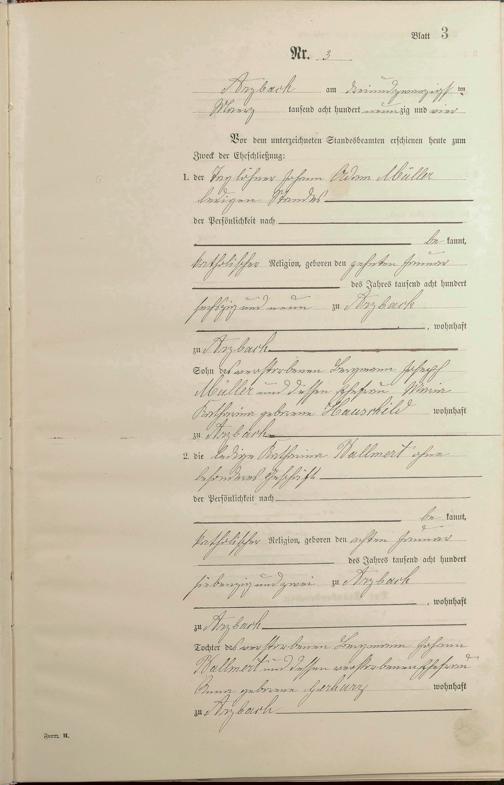 Blatt 3
Nr. 3
Arzbach am dreiundzwanzigsten
März tausend acht hundert neunzig und vier
Vor dem unterzeichneten Standesbeamten erschienen heute zum
Zweck der Eheschließung:
1. der Taglöhner Johann Adam Müller
ledigen Standes
der Persönlichkeit nach
be kannt,
katholischer Religion, geboren den zehnten Januar
des Jahres tausend acht hundert
sechszig und neun zu Arzbach
, wohnhaft
zu Arzbach
Sohn des verstorbenen Bergmann Joseph
Müller und dessen Ehefrau Maria
Katharina geborene Hauschild wohnhaft
zu Arzbach
2. die ledige Katharina Wallmert ohne
besonderes Geschäft
der Persönlichkeit nach
be kannt,
katholischer Religion, geboren den achten Januar
des Jahres tausend acht hundert
siebenzig und zwei zu Arzbach
, wohnhaft
zu Arzbach
Tochter des verstorbenen Bergmann Johann
Wallmert und dessen verstorbenen Ehefrau
Anna geborene wohnhaft
zu Arzbach
Form. B.